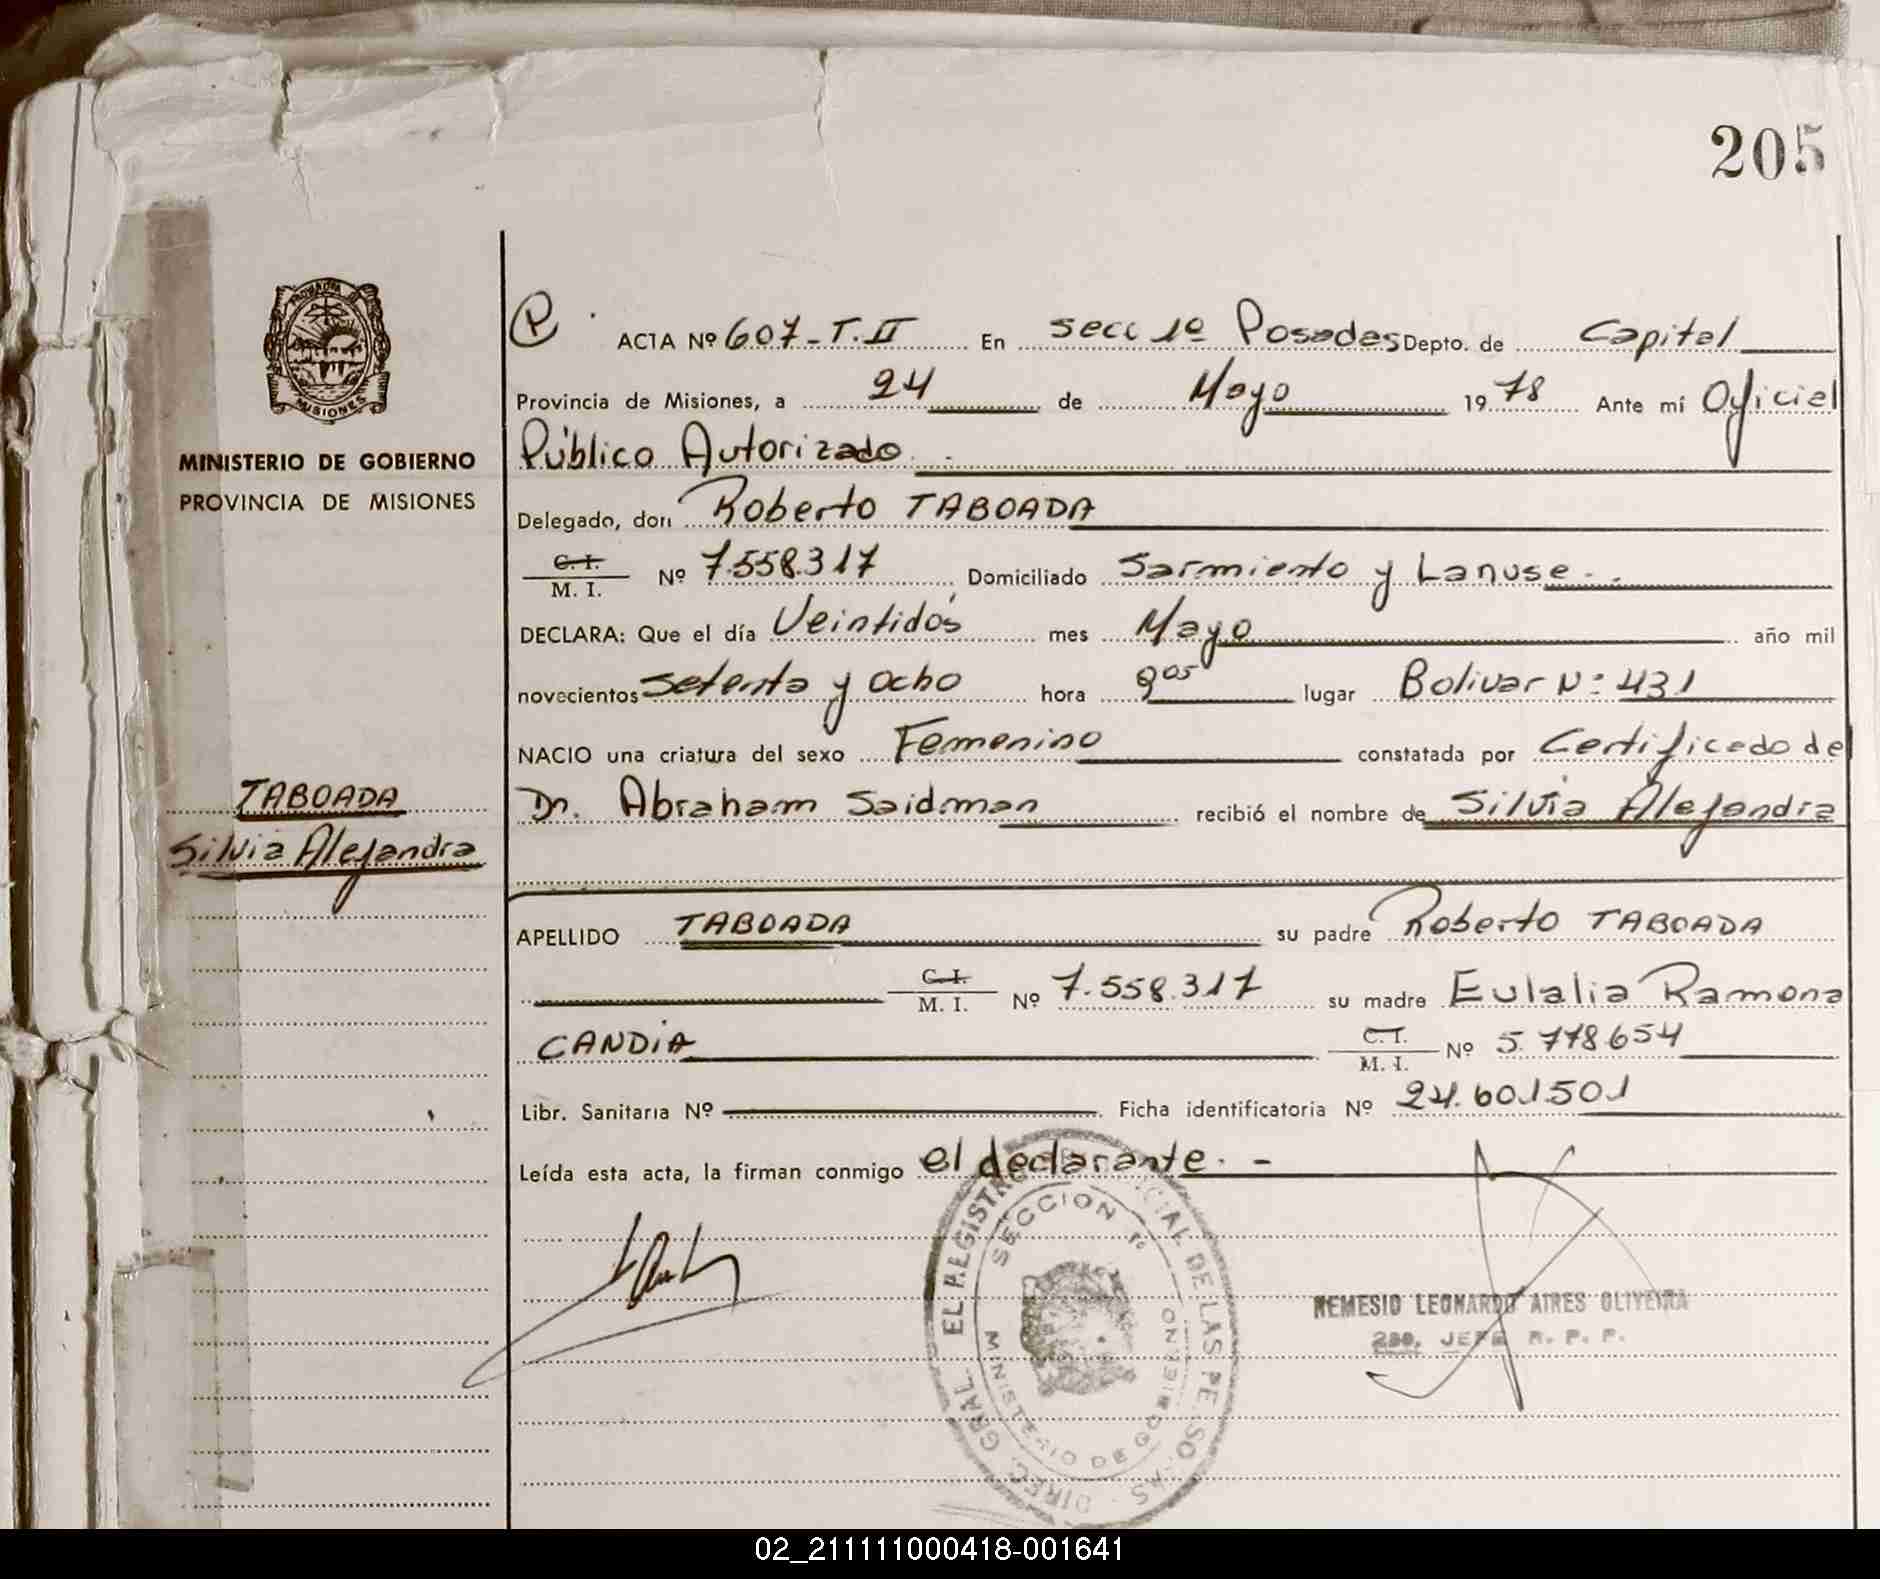 205
PROVINCIA DE
MISIONES
MINISTERIO DE GOBIERNO
PROVINCIA DE MISIONES
TABOADA
Silvia Alejandra
P. ACTA Nº 607-T.II En secc 1º Posadas Depto. de Capital
Provincia de Misiones, a 24 de Mayo 1978 Ante mí Oficial
Público Autorizado
Delegado, don Roberto TABOADA
C. I.
M. I. Nº 7.558.317 Domiciliado Sarmiento y Lanuse
DECLARA: Que el día Veintidós mes Mayo año mil
novecientos setenta y ocho hora 9 05 lugar Bolivar Nº: 431
NACIO una criatura del sexo Femenino constatada por Certificado del
Dr. Abraham Saidman recibió el nombre de Silvia Alejandra
APELLIDO TABOADA su padre Roberto TABOADA
C. I.
M. I. Nº 7.558.317 su madre Eulalia Ramona
CANDIA C. I.
M. I. Nº 5.778.654
Libr. Sanitaria Nº Ficha identificatoria Nº 24.601.501
Leída esta acta, la firman conmigo el declarante. -
DIREC. GRAL. EL REGISTRO CIAL DE LAS PE SO AS
SECCION 1º
MINISTERIO DE GOBIERNO
NEMESIO LEONARDO AIRES OLIVEIRA
2do. JEFE R. P. P.
02_211111000418-001641